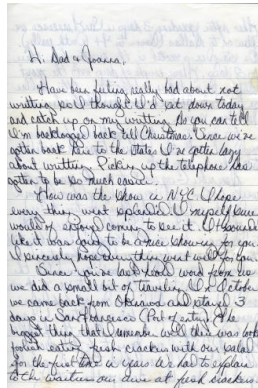 Hi Dad & Joanna,
Have been feeling really bad about not
writting so I thought I'd sat down today
and catch up on my writting. As you can tell
I'm backlogged back till Christmas. Since we've
gotten back here to the States I've gotten lazy
about writting. Picking up the telephone has
gotten to be so much easier.
How was the show in NYC. I hope
every thing went splendid. I myself sure
would of enjoyed coming to see it. It sounded
like it was going to be a nice showing for you.
I sincerely hope every thing went well for you.
Since you've last heard word from us
we did a small bit of traveling. In October
we came back from Okinawa and stayed 3
days in San Francisco (Port of entry). The
biggest thing that I remember well this was look
foolish eating fish crackers with our salad
for the first time in years. We had to explain
to the waitress our dive at fish crackers